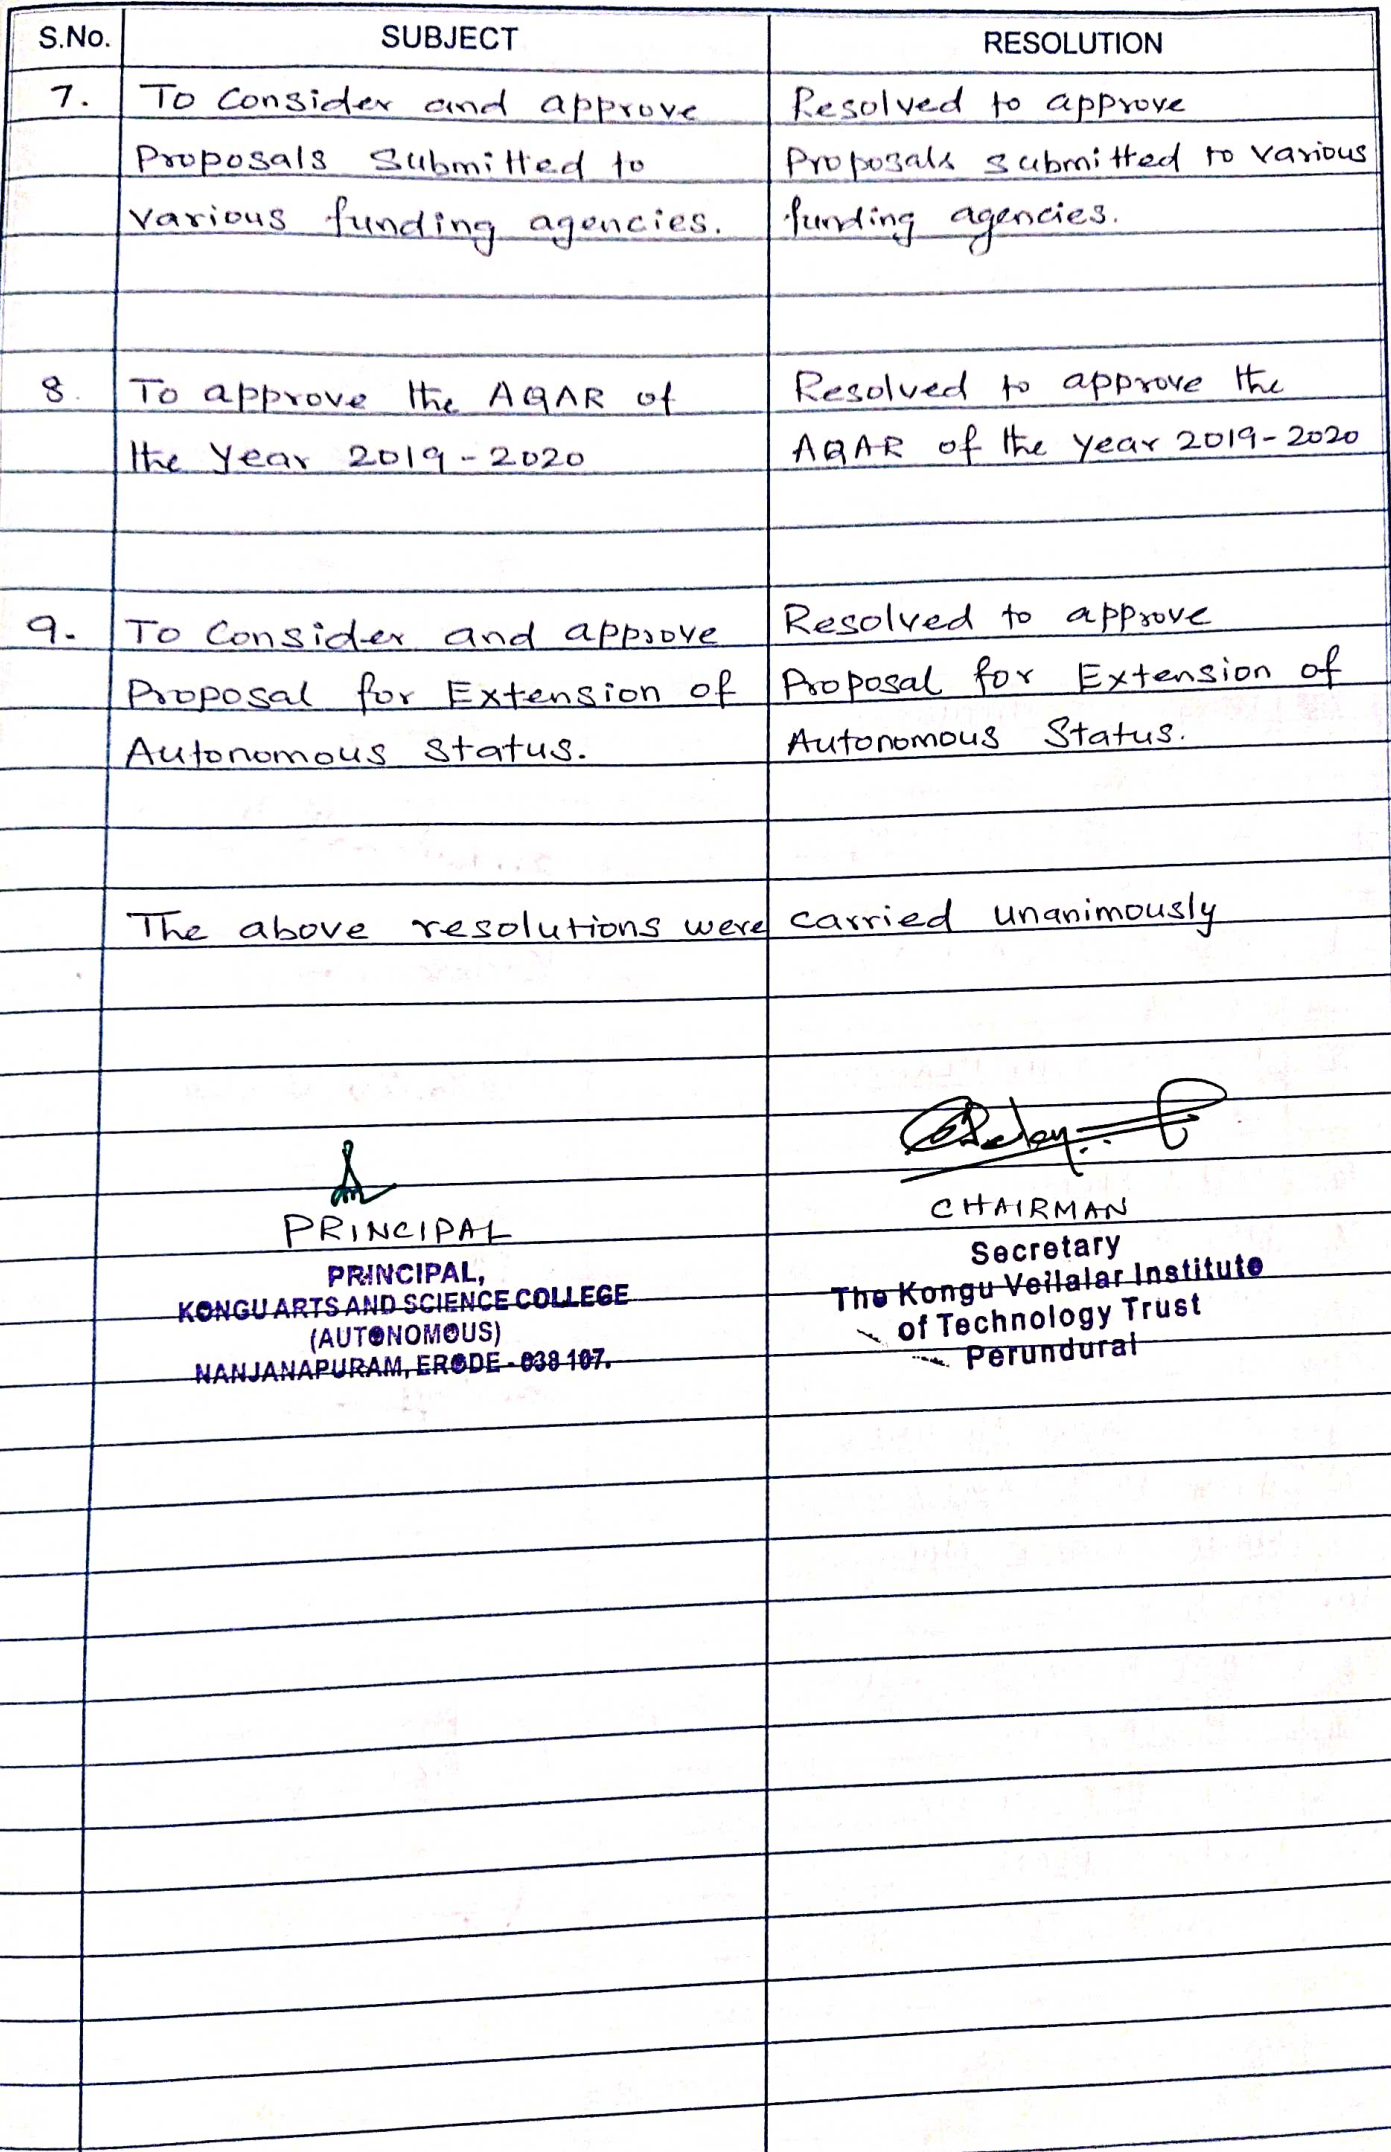 S.No. SUBJECT RESOLUTION
7. To Consider and approve
Proposals Submitted to
various funding agencies.
Resolved to approve
Proposals submitted to various
funding agencies.
8. To approve the AQAR of
the Year 2019-2020
Resolved to approve the
AQAR of the year 2019-2020
9. To Consider and approve
Proposal for Extension of
Autonomous Status.
Resolved to approve
Proposal for Extension of
Autonomous Status.
The above resolutions were carried unanimously
PRINCIPAL
PRINCIPAL,
KONGU ARTS AND SCIENCE COLLEGE
(AUTONOMOUS)
NANJANAPURAM, ERODE - 638 107.
CHAIRMAN
Secretary
The Kongu Vellalar Institute
of Technology Trust
Perundurai